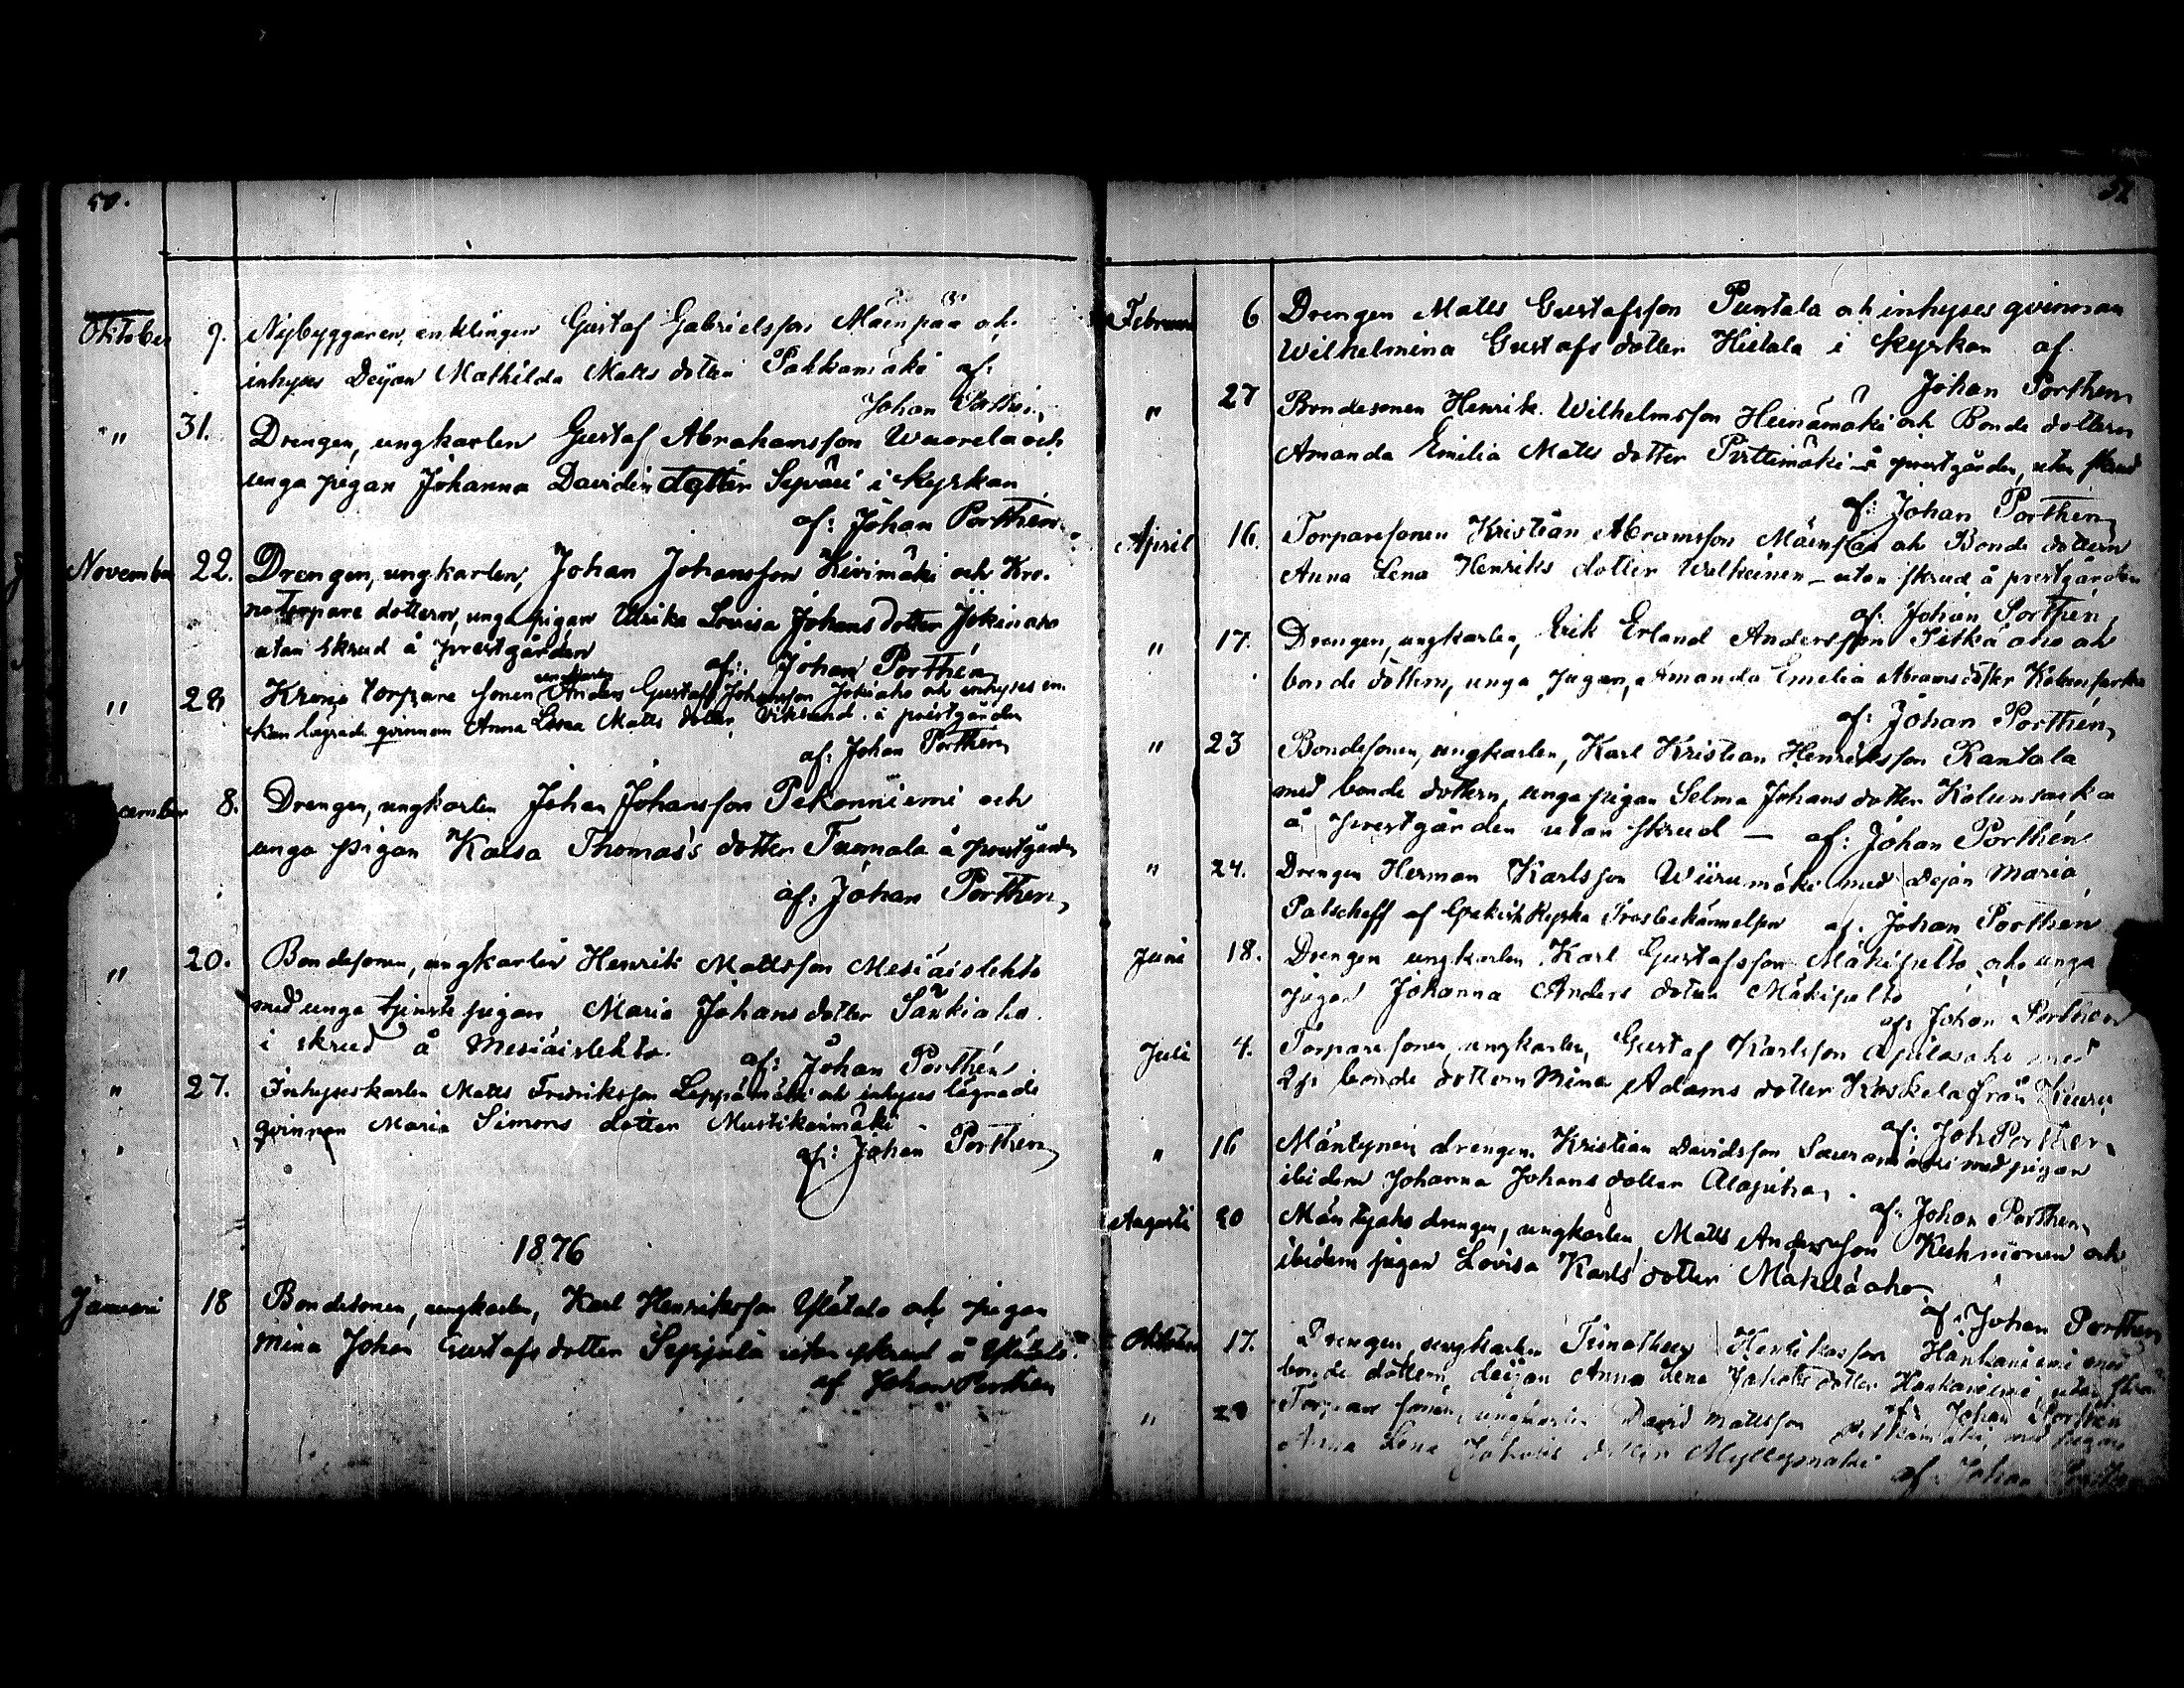 50.
Oktober 9. Nybyggaren, enklingen Gustaf Gabrielsson Mäenpää och
inhyses Dejan Mathilda Matts dotter Pakkamäki af:
Johan Porthén
" 31. Drengen, ungkarlen Gustaf Abrahamsson Wuorela och
unga pigan Johanna Davids dotter i kyrkan
af: Johan Porthén
November 22. Drengen, ungkarlen, Johan Johansson Kivimäki och Kro-
notorpare dottern, unga pigan Ulrika Lovisa Johans dotter Jokinaho
utan skrud å prestgården
af: Johan Porthén
ungkarlen
" 28 Krono torpare sonen Anders Gustaf Johansson Jokiaho och inhyses en-
kan lägrade qvinnan Anna Lena Matts dotter å prestgården
af: Johan Porthén
cember 8. Drengen, ungkarlen Johan Johansson Pekonniemi och
unga pigan Kaisa Thomas's dotter Tuomala å prestgården
af: Johan Porthén
" 20. Bondesonen, ungkarlen Henrik Mattsson Mesiäislehto
med unga tjenste pigan Maria Johans dotter Särkiaho
i skrud å Mesiäislehto.
af: Johan Porthén
" 27. Inhyseskarlen Matts Fredriksson Leppämäki och inhyses lägrade
qvinnan Maria Simons dotter Mustikanmäki
af: Johan Porthén
1876
Januari 18 Bondesonen, ungkarlen, Karl Henriksson Ylätalo och pigan
Mina Johan Gustafs dotter Seppälä utan skrud å Ylätalo
af Johan Porthén
51
Februari 6 Drengen Matts Gustafsson Puntala och inhyses qvinnan
Wilhelmina Gustafs dotter Hietala i kyrkan af
Johan Porthén
" 27 Bondesonen Henrik Wilhelmsson Heinämäki och Bonde dottern
Amanda Emilia Matts dotter Pirttimäki å prestgården, utan skrud
af: Johan Porthén
April 16. Torparesonen Kristian Abramsson Mäenpää och Bonde dottern
Anna Lena Henriks dotter Walkeinen - utan skrud å prestgården
af: Johan Porthén
" 17. Drengen, ungkarlen, Erik Erland Andersson Pitkäaho och
bonde dottern, unga pigan, Amanda Emelia Abrams dotter
af: Johan Porthén
" 23 Bondesonen, ungkarlen, Karl Kristian Henriksson Rantala
med bonde dottern, unga pigan Selma Johans dotter Kolunsarka
å prestgården utan skrud — af: Johan Porthén
" 24. Drengen Herman Karlsson Wiirumäki med Dejan Maria
Patscheff af Grekisk Kyrka Trosbekännelsen af: Johan Porthén
Juni 18. Drengen ungkarlen Karl Gustafsson Mäkipelto och unga
pigan Johanna Anders dotter Mäkipelto
af: Johan Porthén
Juli 4. Torparesonen, ungkarlen, Gustaf Karlsson med
bonde dottern Mina Adams dotter Koskela från Kuru
af: Joh Porthén
" 16 Mäntynen drengen Kristian Davidsson med pigan
ibidem Johanna Johans dotter Alapiha.
af: Johan Porthén
Augusti 20 Mäntyaho drengen, ungkarlen, Matts Andersson och
ibidem pigan Lovisa Karls dotter Mäkeläaho
af: Johan Porthén
Oktober 17. Drengen, ungkarlen Timotheus Henriksson Hankaniemi med
bonde dottern, dejan Anna Lena Jakobs dotter Hankaniemi, utan skrud
af: Johan Porthén
" 29 Torpare sonen, ungkarlen David Mattsson med pigan
Anna Lena Jakobs dotter Myllymäki
af: Johan Porthén